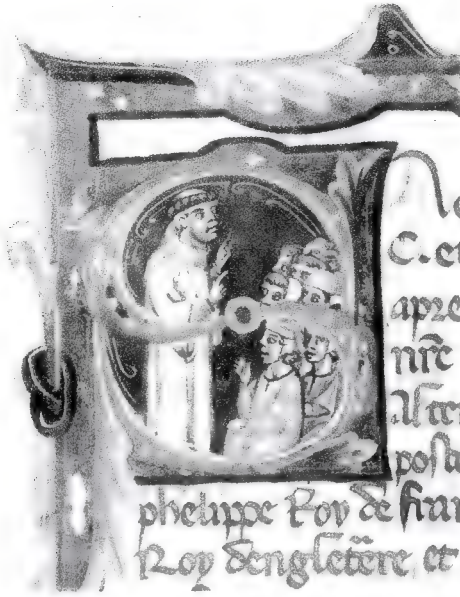 C. et
apre
nr̃e
Al ten
phelippe Roy de fran
Roy dengletẽre et